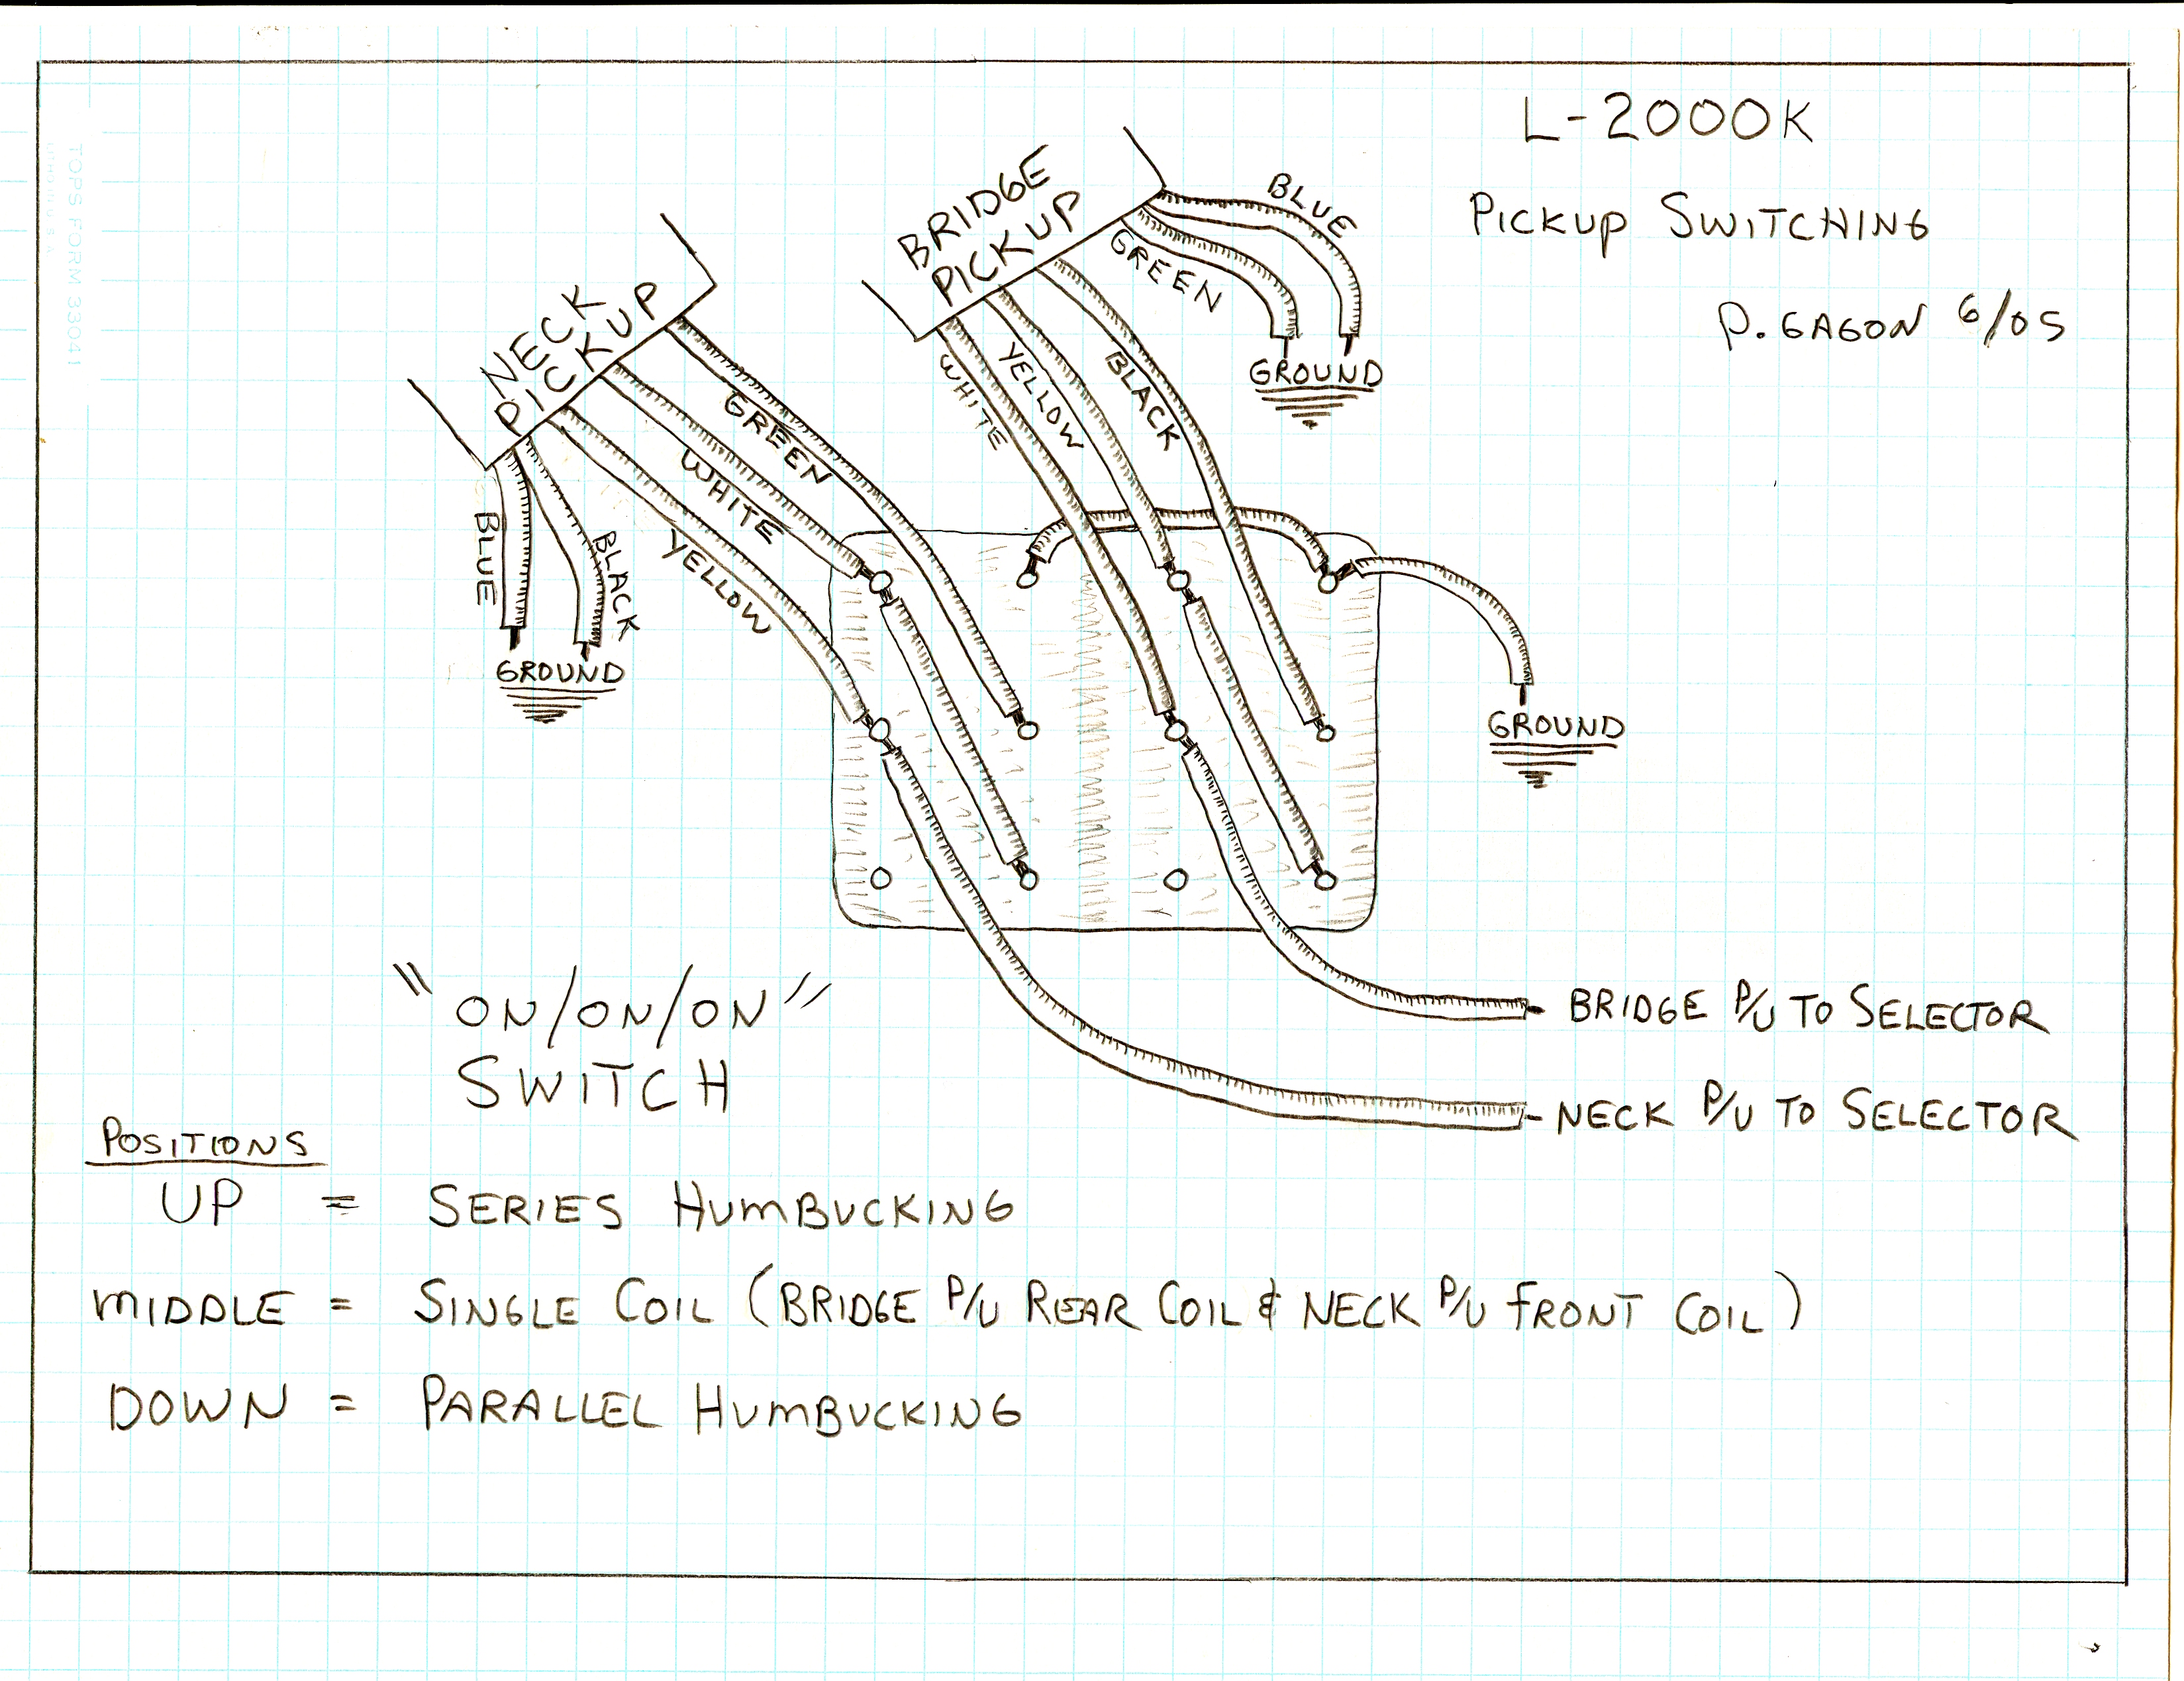 L-2000K
PICKUP SWITCHING
P. GAGON 6/05
BRIDGE
PICKUP
BLUE
GREEN
GROUND
WHITE
YELLOW
BLACK
NECK
PICKUP
GREEN
WHITE
YELLOW
BLUE
BLACK
GROUND
GROUND
TOPS FORM 33041
"ON/ON/ON"
SWITCH
BRIDGE P/U TO SELECTOR
NECK P/U TO SELECTOR
POSITIONS
UP = SERIES HUMBUCKING
MIDDLE = SINGLE COIL (BRIDGE P/U REAR COIL & NECK P/U FRONT COIL)
DOWN = PARALLEL HUMBUCKING